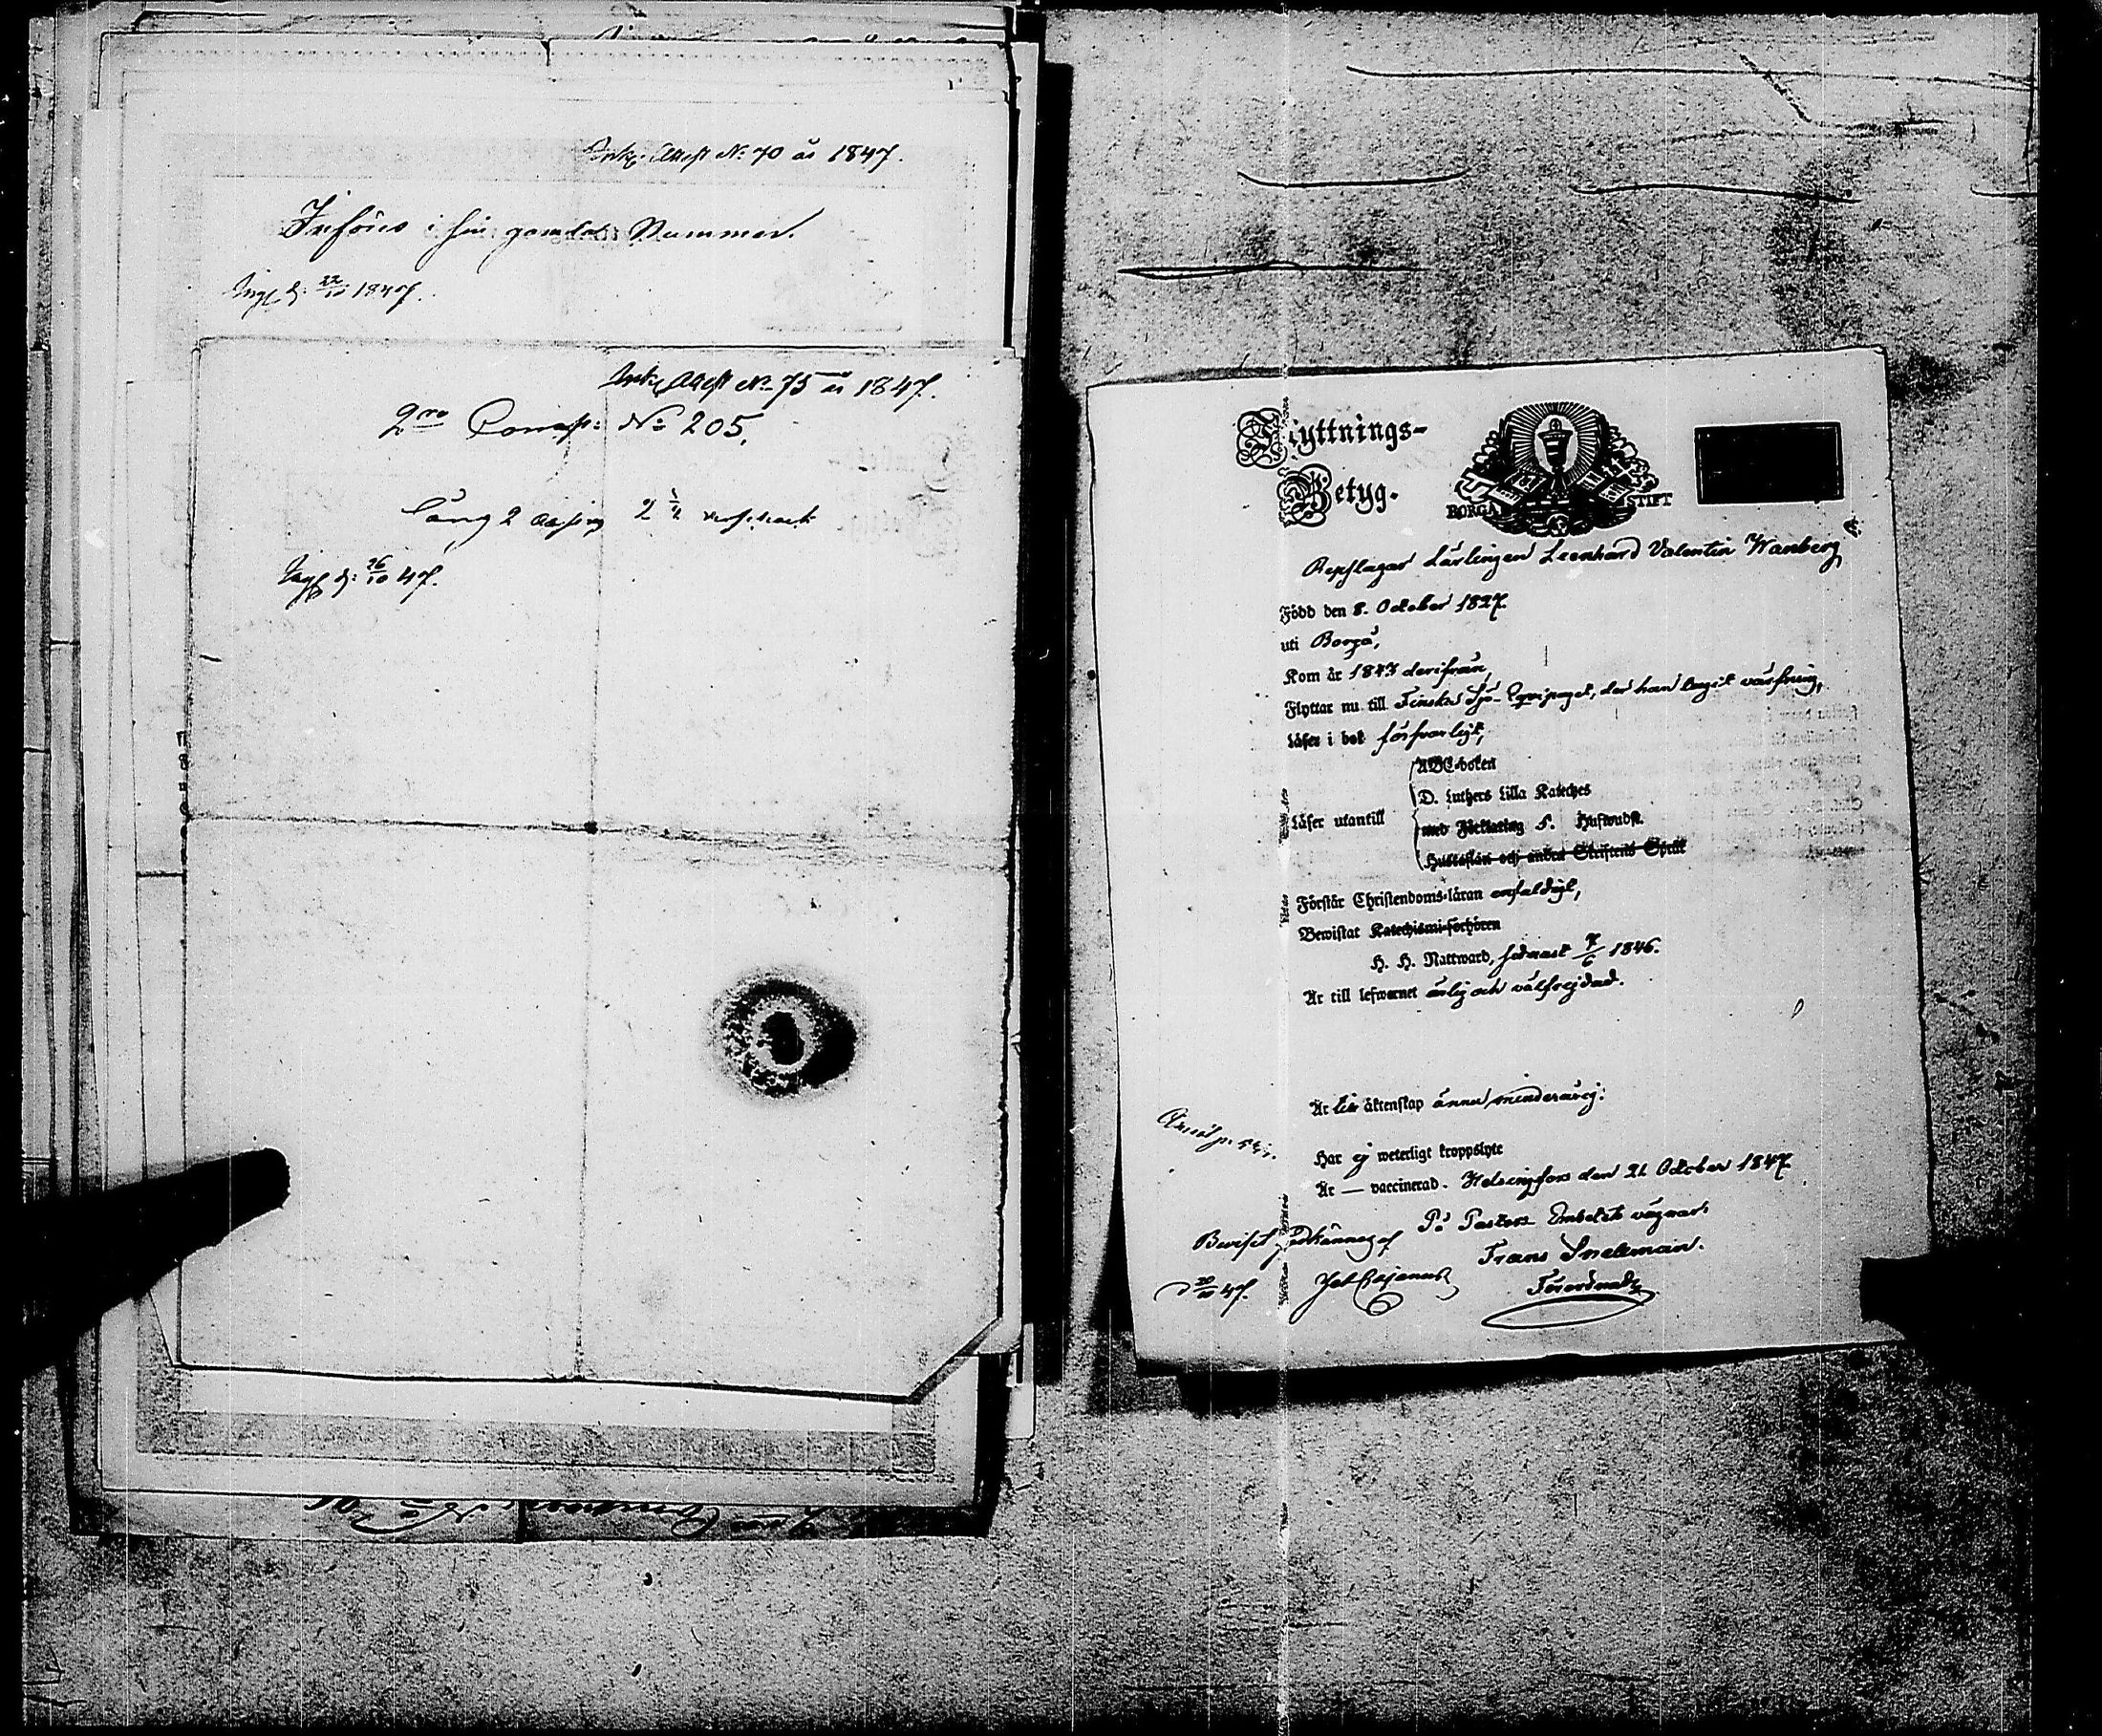 Ank. Attest No 70 år 1847.
Införes i sin gamla Nummer.
Ingf d: 22/10 1847.
Ank. Attest No 75 år 1847.
2ra Comp: No 205.
Lång 2 2 1/2
Ingf d: 26/10 47.
Flyttnings-
Betyg.
BORGÅ STIFT
Repslagar Lärlingen Leonhard Valentin Wanberg
Född den 8. October 1827.
uti Borgå,
Kom år 1843 derifrån,
Flyttar nu till Finska Sjö-Equipaget, der han tagit värfning,
Läser i bok försvarligt,
ABC-boken
D. Luthers Lilla Kateches
Läser utantill
med Förklaring 5. Hufwudst.
Hustaflan och andra Skriftens Språk
Förstår Christendoms-läran enfaldigt,
Bewistat Katechismi-förhören
H. H. Nattward, sednast 7/6 1846.
Är till lefwernet ärlig och välfrejdad.
Är till äktenskap ännu minderårig.
Har ej weterligt kroppslyte
Är — vaccinerad. Helsingfors den 21 October 1847
På Pastors Embetets vägnar:
Beviset godkännes af
Frans Snellman.
d 20/10 47. Joh Cajanus
Förordnad